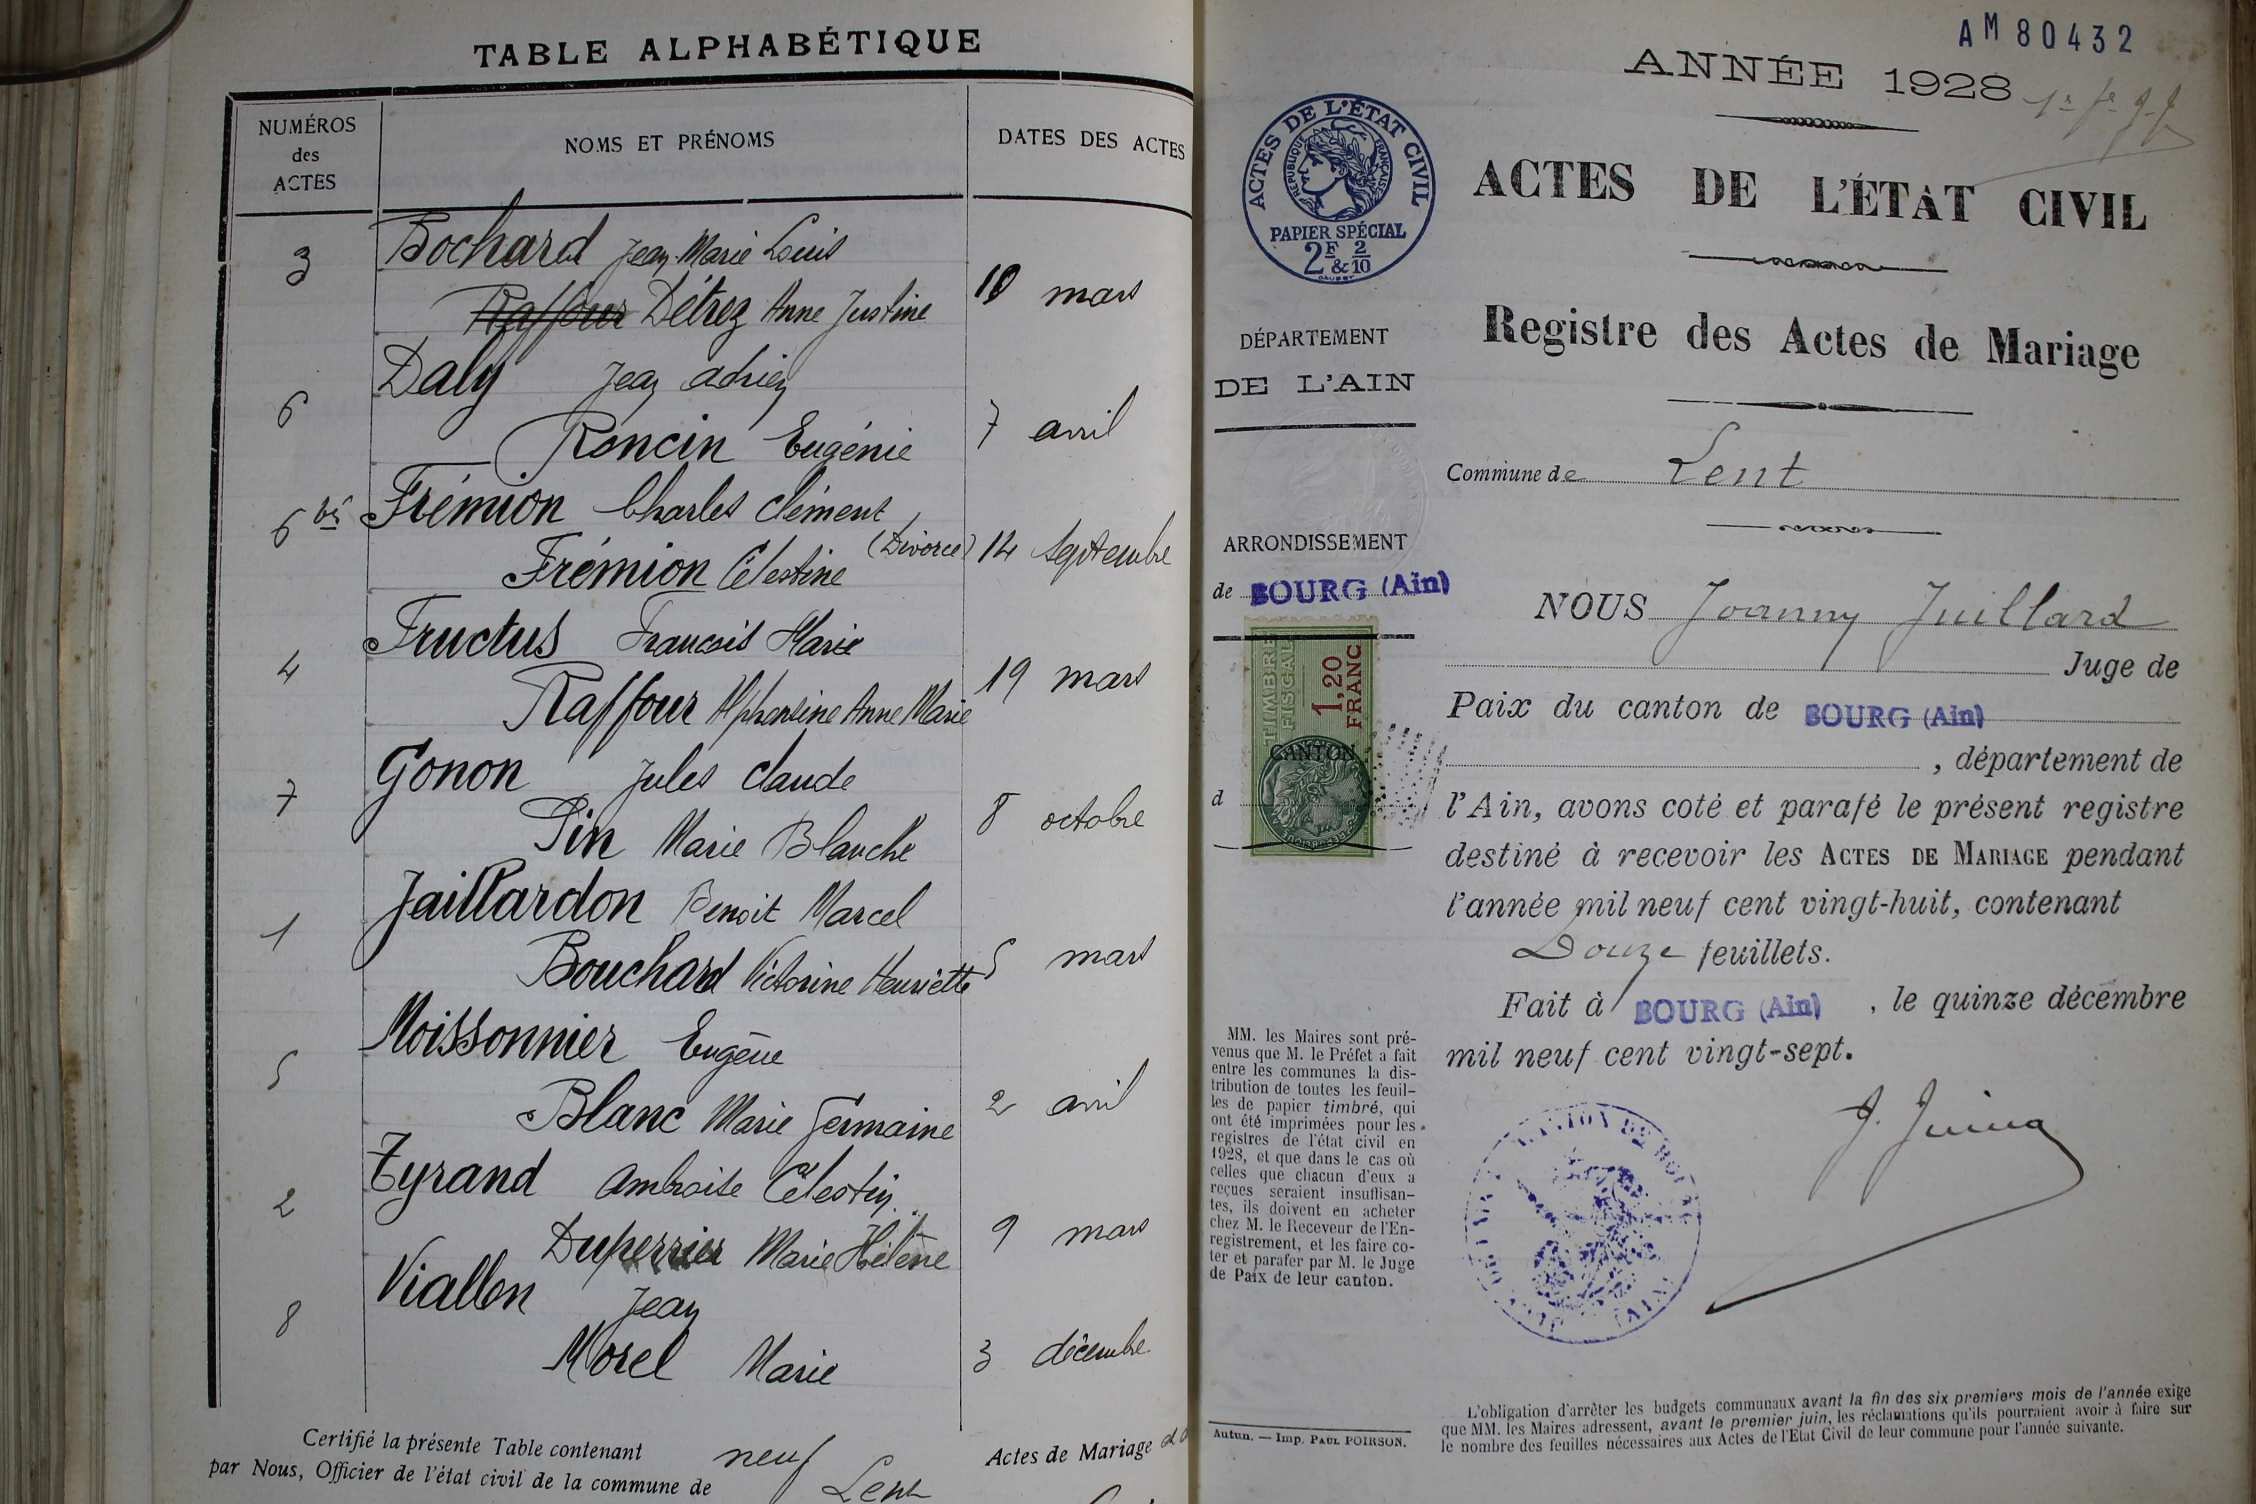 TABLE ALPHABÉTIQUE
NUMÉROS des ACTES
NOMS ET PRÉNOMS
DATES DES ACTES
3 Bochard Jean-Marie Louis
Raffour Détrez Anne Justine 10 mars
6 Daly Jean Adrien
Roncin Eugénie 7 avril
6 bis Frémion Charles Clément
Frémion Célestine (Divorce) 14 septembre
4 Fructus François Marie
Raffour Alphonsine Anne Marie 19 mars
7 Gonon Jules Claude
Pin Marie Blanche 8 octobre
1 Jaillardon Benoit Marcel
Bouchard Victorine Henriette 5 mars
5 Moissonnier Eugène
Blanc Marie Germaine 2 avril
2 Tyrand Ambroise Célestin
Duperrier Marie Hélène 9 mars
8 Viallon Jean
Morel Marie 3 décembre
Certifié la présente Table contenant neuf Actes de Mariage
par Nous, Officier de l'état civil de la commune de Lent
AM 80432
ANNÉE 1928
ACTES DE L'ÉTAT CIVIL
RÉPUBLIQUE FRANÇAISE
PAPIER SPÉCIAL
2F & 2/10
ACTES DE L'ÉTAT CIVIL
Registre des Actes de Mariage
DÉPARTEMENT
DE L'AIN
Commune de Lent
ARRONDISSEMENT
de BOURG (Ain)
TIMBRE FISCAL
1,20 FRANC
CANTON
d
NOUS Joanny Juillard
Juge de
Paix du canton de BOURG (Ain)
, département de
l'Ain, avons coté et parafé le présent registre
destiné à recevoir les ACTES DE MARIAGE pendant
l'année mil neuf cent vingt-huit, contenant
Douze feuillets.
Fait à BOURG (Ain) , le quinze décembre
mil neuf cent vingt-sept.
MM. les Maires sont pré-
venus que M. le Préfet a fait
entre les communes la dis-
tribution de toutes les feuil-
les de papier timbré, qui
ont été imprimées pour les
registres de l'état civil en
1928, et que dans le cas où
celles que chacun d'eux a
reçues seraient insuffisan-
tes, ils doivent en acheter
chez M. le Receveur de l'En-
registrement, et les faire co-
ter et parafer par M. le Juge
de Paix de leur canton.
Autun. — Imp. PAUL POIRSON.
L'obligation d'arrêter les budgets communaux avant la fin des six premiers mois de l'année exige
que MM. les Maires adressent, avant le premier juin, les réclamations qu'ils pourraient avoir à faire sur
le nombre des feuilles nécessaires aux Actes de l'Etat Civil de leur commune pour l'année suivante.